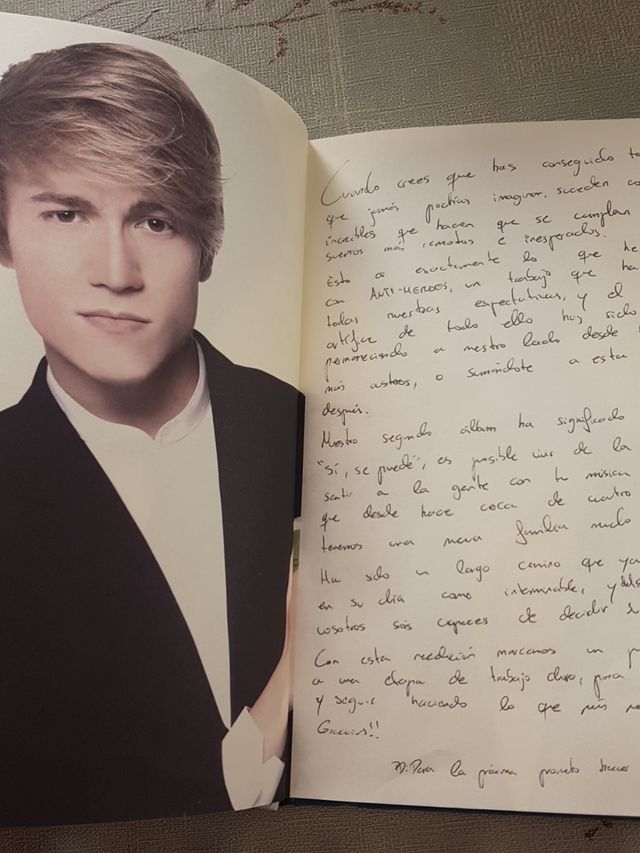 Cuando crees que has conseguido to
que jamás podrías imaginar, suceden co
increíbles que hacen que se cumplan
sueños más remotos e inesperados.
Esto es exactamente lo que he
con ANTI-HÉROES, un trabajo que ha
todas nuestras expectativas, y el
artífice de todo ello has sido
permaneciendo a nuestro lado desde
más, o sumándote a esta
después.
Nuestro segundo álbum ha significado
"sí, se puede", es posible vivir de la
sentir a la gente con tu música
que desde hace cerca de cuatro
tenemos una nueva familia mucho
Ha sido un largo camino que ya
en su día como interminable, y
vosotros sois capaces de decidir
Con esta reedición marcamos un p
a una etapa de trabajo duro, para
y seguir haciendo lo que más
Gracias!!
PD. Para la próxima prometo